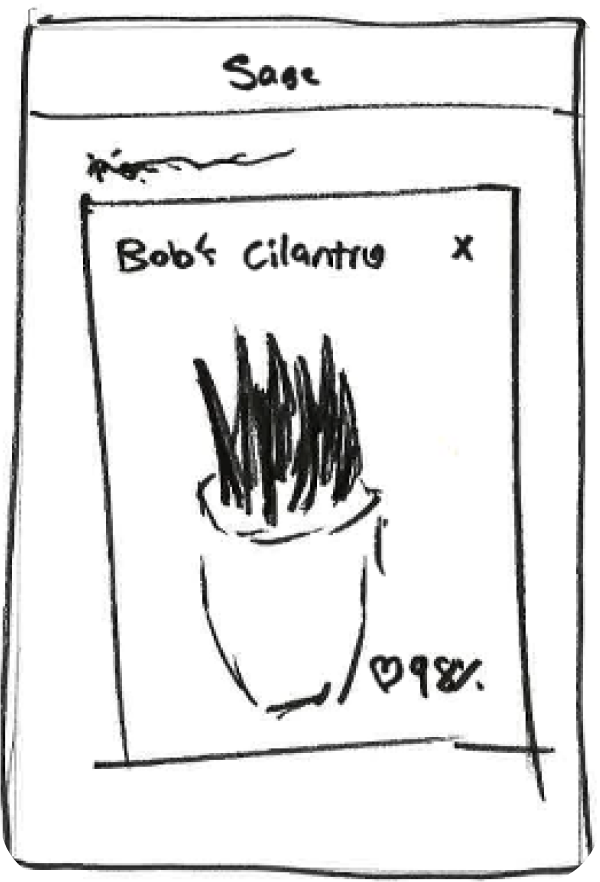 Sage
Bob's Cilantro X
♡98%